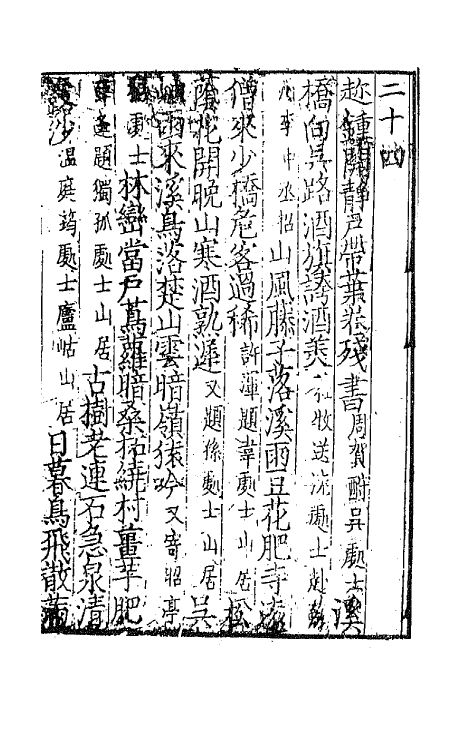 二十四
趂鐘關靜戶帶葉卷殘書周賀酧吳處士溪
橋向吳路酒旗誇酒羙杜牧送沈處士赴蘇
州李中丞招山風藤子落溪雨豆花肥寺遠
僧來少橋危客過稀許渾題韋處士山居松
蔭花開晚山寒酒孰遲又題孫處士山居吳
岫雨來溪鳥落楚山雲暗嶺猿吟又寄昭亭
處士林巒當戶蔦蘿暗桑柘繞村薑芋肥
逢題獨孤處士山居古樹老連石急泉清
露沙溫庭筠處士盧岵山居日暮鳥飛散滿